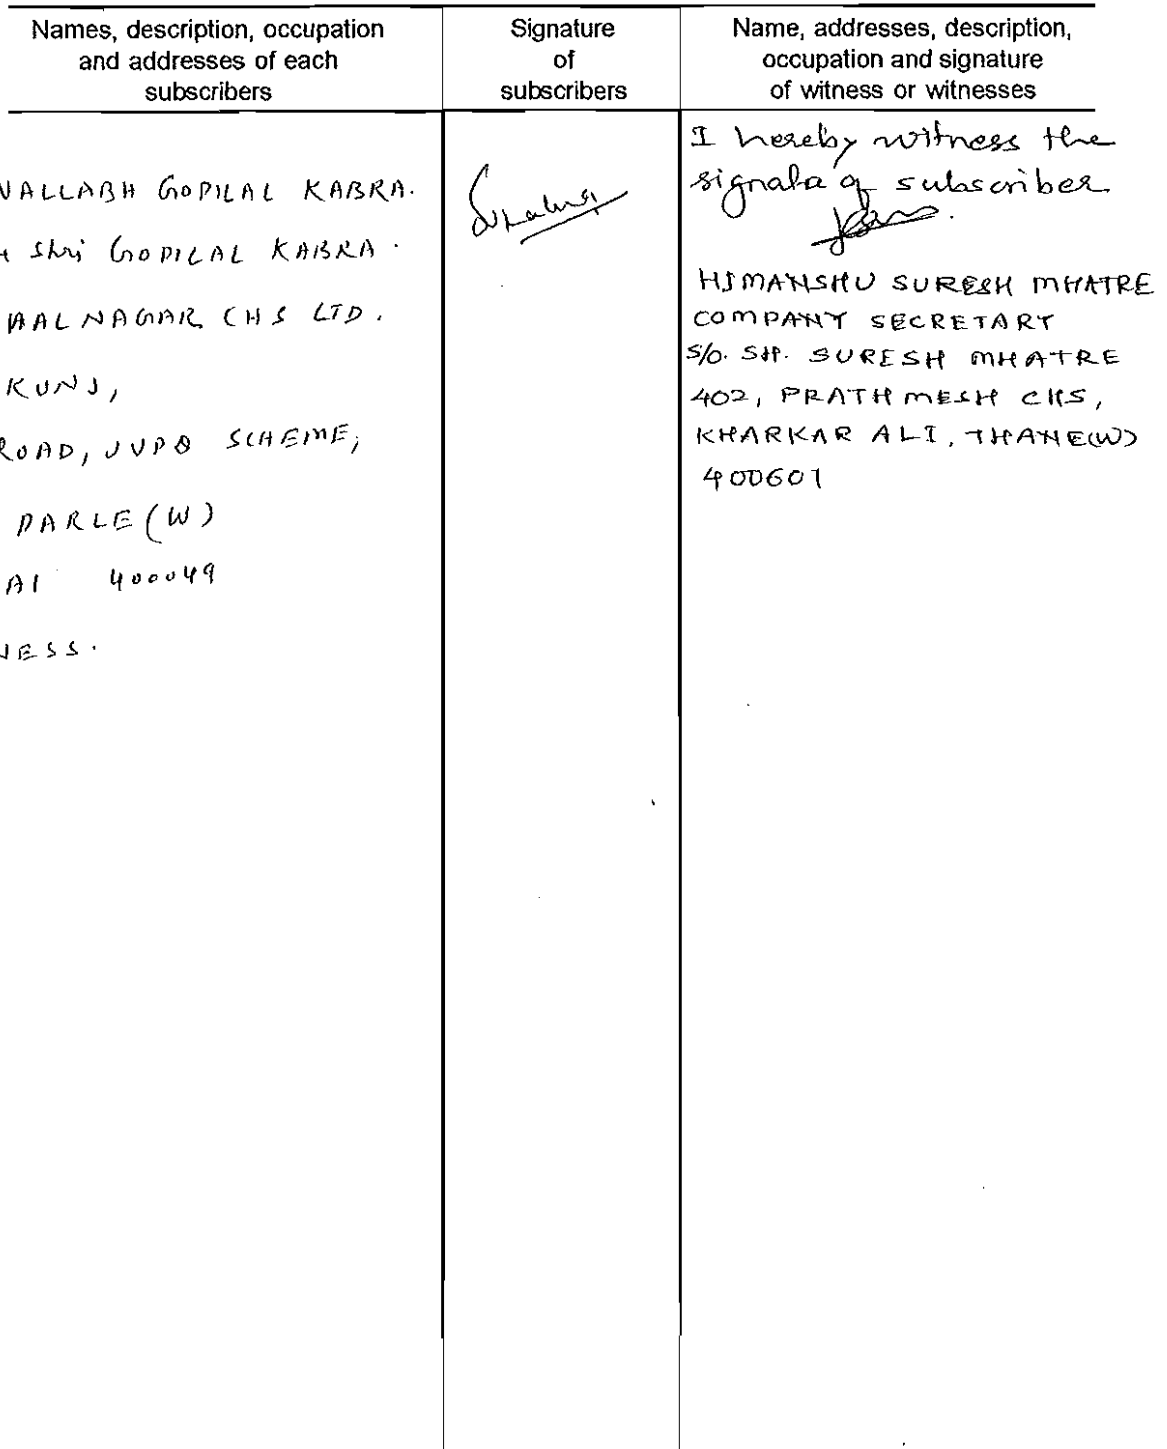 Names, description, occupation
and addresses of each
subscribers
Signature
of
subscribers
Name, addresses, description,
occupation and signature
of witness or witnesses
VALLABH GOPILAL KABRA.
Shri GOPILAL KABRA.
NAGAR CHS LTD.
KUNJ,
ROAD, JVPD SCHEME,
PARLE (W)
AI 400049
NESS.
I hereby witness the
signature of subscriber
HIMANSHU SURESH MHATRE
COMPANY SECRETARY
S/O. SH. SURESH MHATRE
402, PRATHMESH CHS,
KHARKAR ALI, THANE(W)
400601